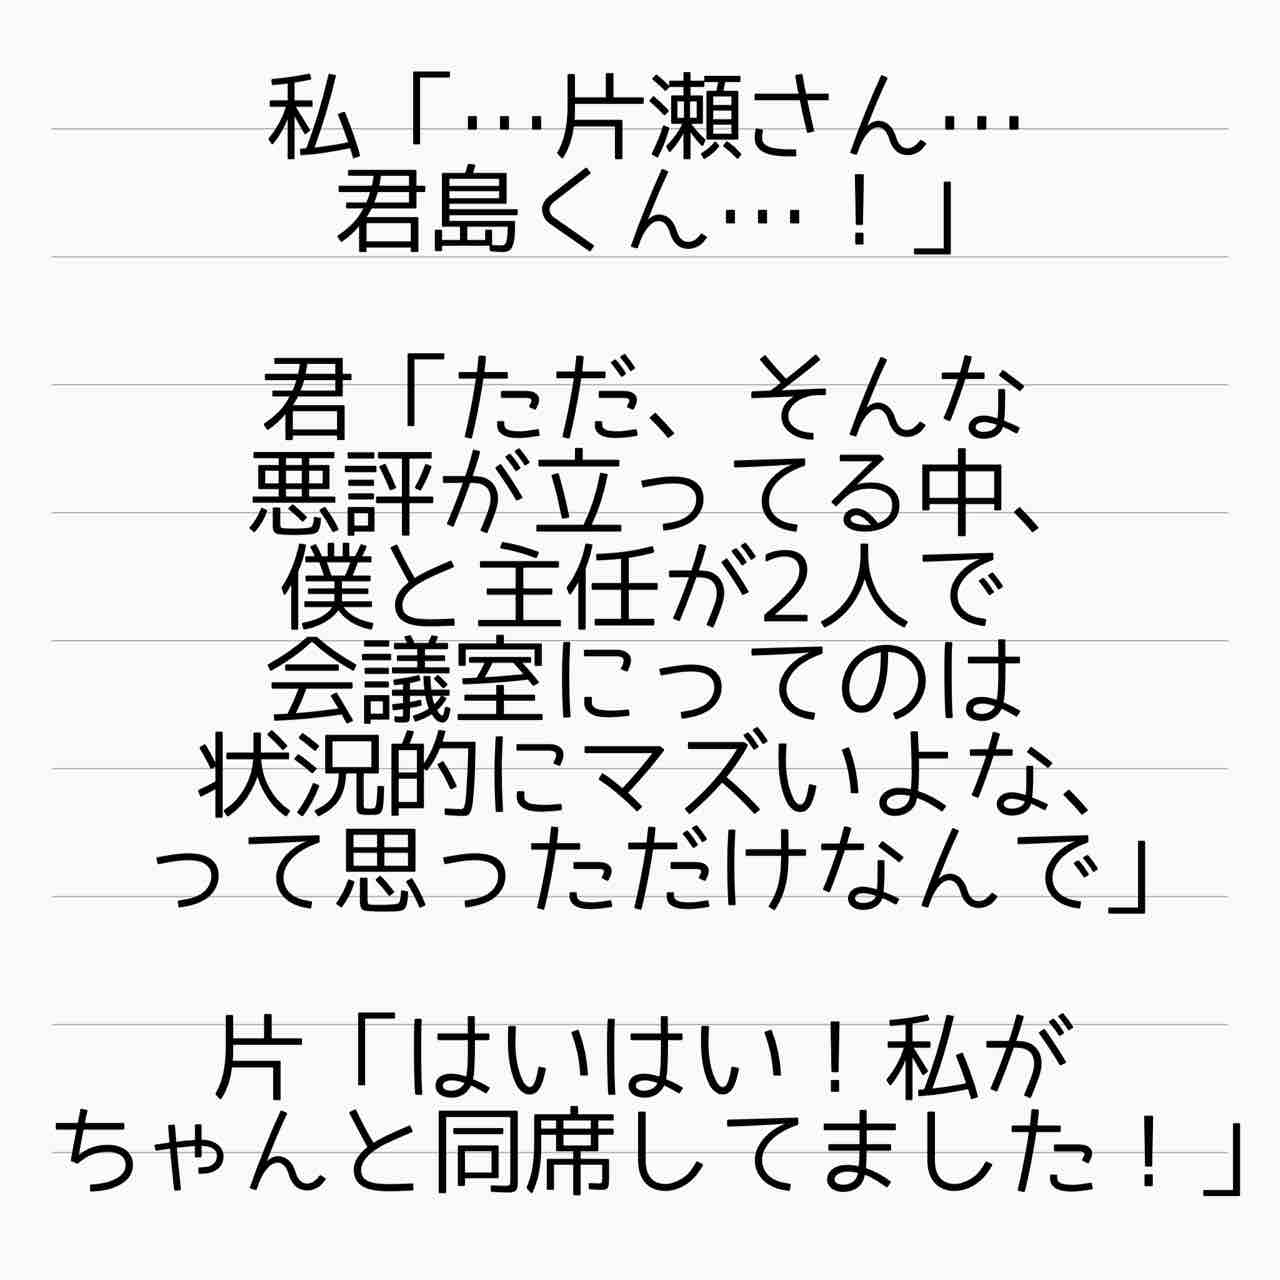 私「…片瀬さん…
君島くん…！」
君「ただ、そんな
悪評が立ってる中、
僕と主任が2人で
会議室にってのは
状況的にマズいよな、
って思っただけなんで」
片「はいはい！私が
ちゃんと同席してました！」